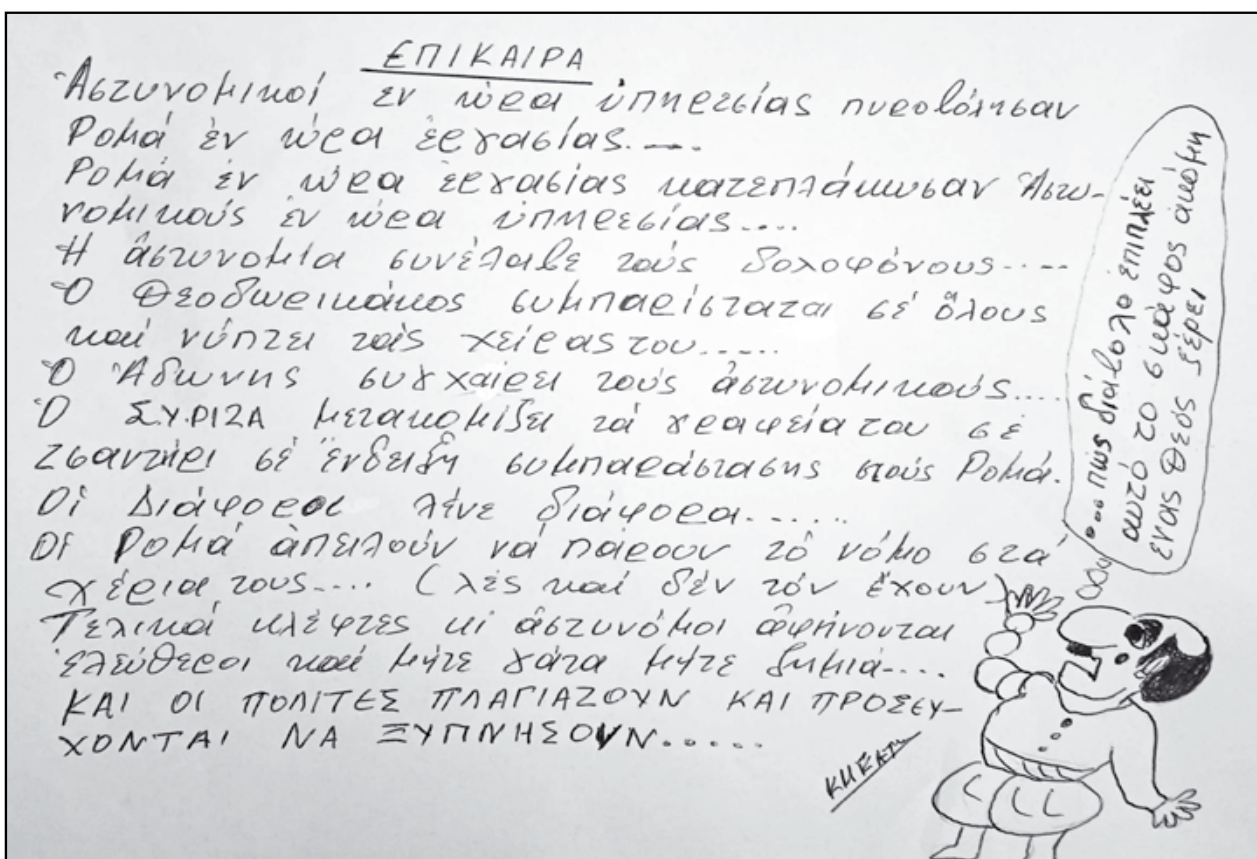 ΕΠΙΚΑΙΡΑ
Ἀστυνομικοί ἐν ὥρα ὑπηρεσίας πυροβόλησαν
Ρομά ἐν ὥρα ἐργασίας.....
Ρομά ἐν ὥρα ἐργασίας κατεπλάκωσαν Ἀστυ-
νομικούς ἐν ὥρα ὑπηρεσίας....
Ἡ ἀστυνομία συνέλαβε τούς δολοφόνους....
Ὁ Θεοδωρικάκος συμπαρίσταται σέ ὅλους
καί νύπτει τάς χείρας του......
Ὁ Ἄδωνης συγχαίρει τούς ἀστυνομικούς....
Ὁ ΣΥΡΙΖΑ μετακομίζει τά γραφεία του σέ
τσαντήρι σέ ἔνδειξη συμπαράστασης στούς Ρομά.
Οἱ Διάφοροι λένε διάφορα......
Οἱ Ρομά ἀπειλούν νά πάρουν τό νόμο στά
χέρια τους.... (λές καί δέν τόν ἔχουν)
Τελικά κλέφτες κι ἀστυνόμοι ἀφήνονται
ἐλεύθεροι καί μήτε γάτα μήτε ζημιά....
ΚΑΙ ΟΙ ΠΟΛΙΤΕΣ ΠΛΑΓΙΑΖΟΥΝ ΚΑΙ ΠΡΟΣΕΥ-
ΧΟΝΤΑΙ ΝΑ ΞΥΠΝΗΣΟΥΝ.....
...πώς διάβολο ἐπιπλέει
αυτό το σκάφος ἀκόμη
ἕνας Θεός ξέρει